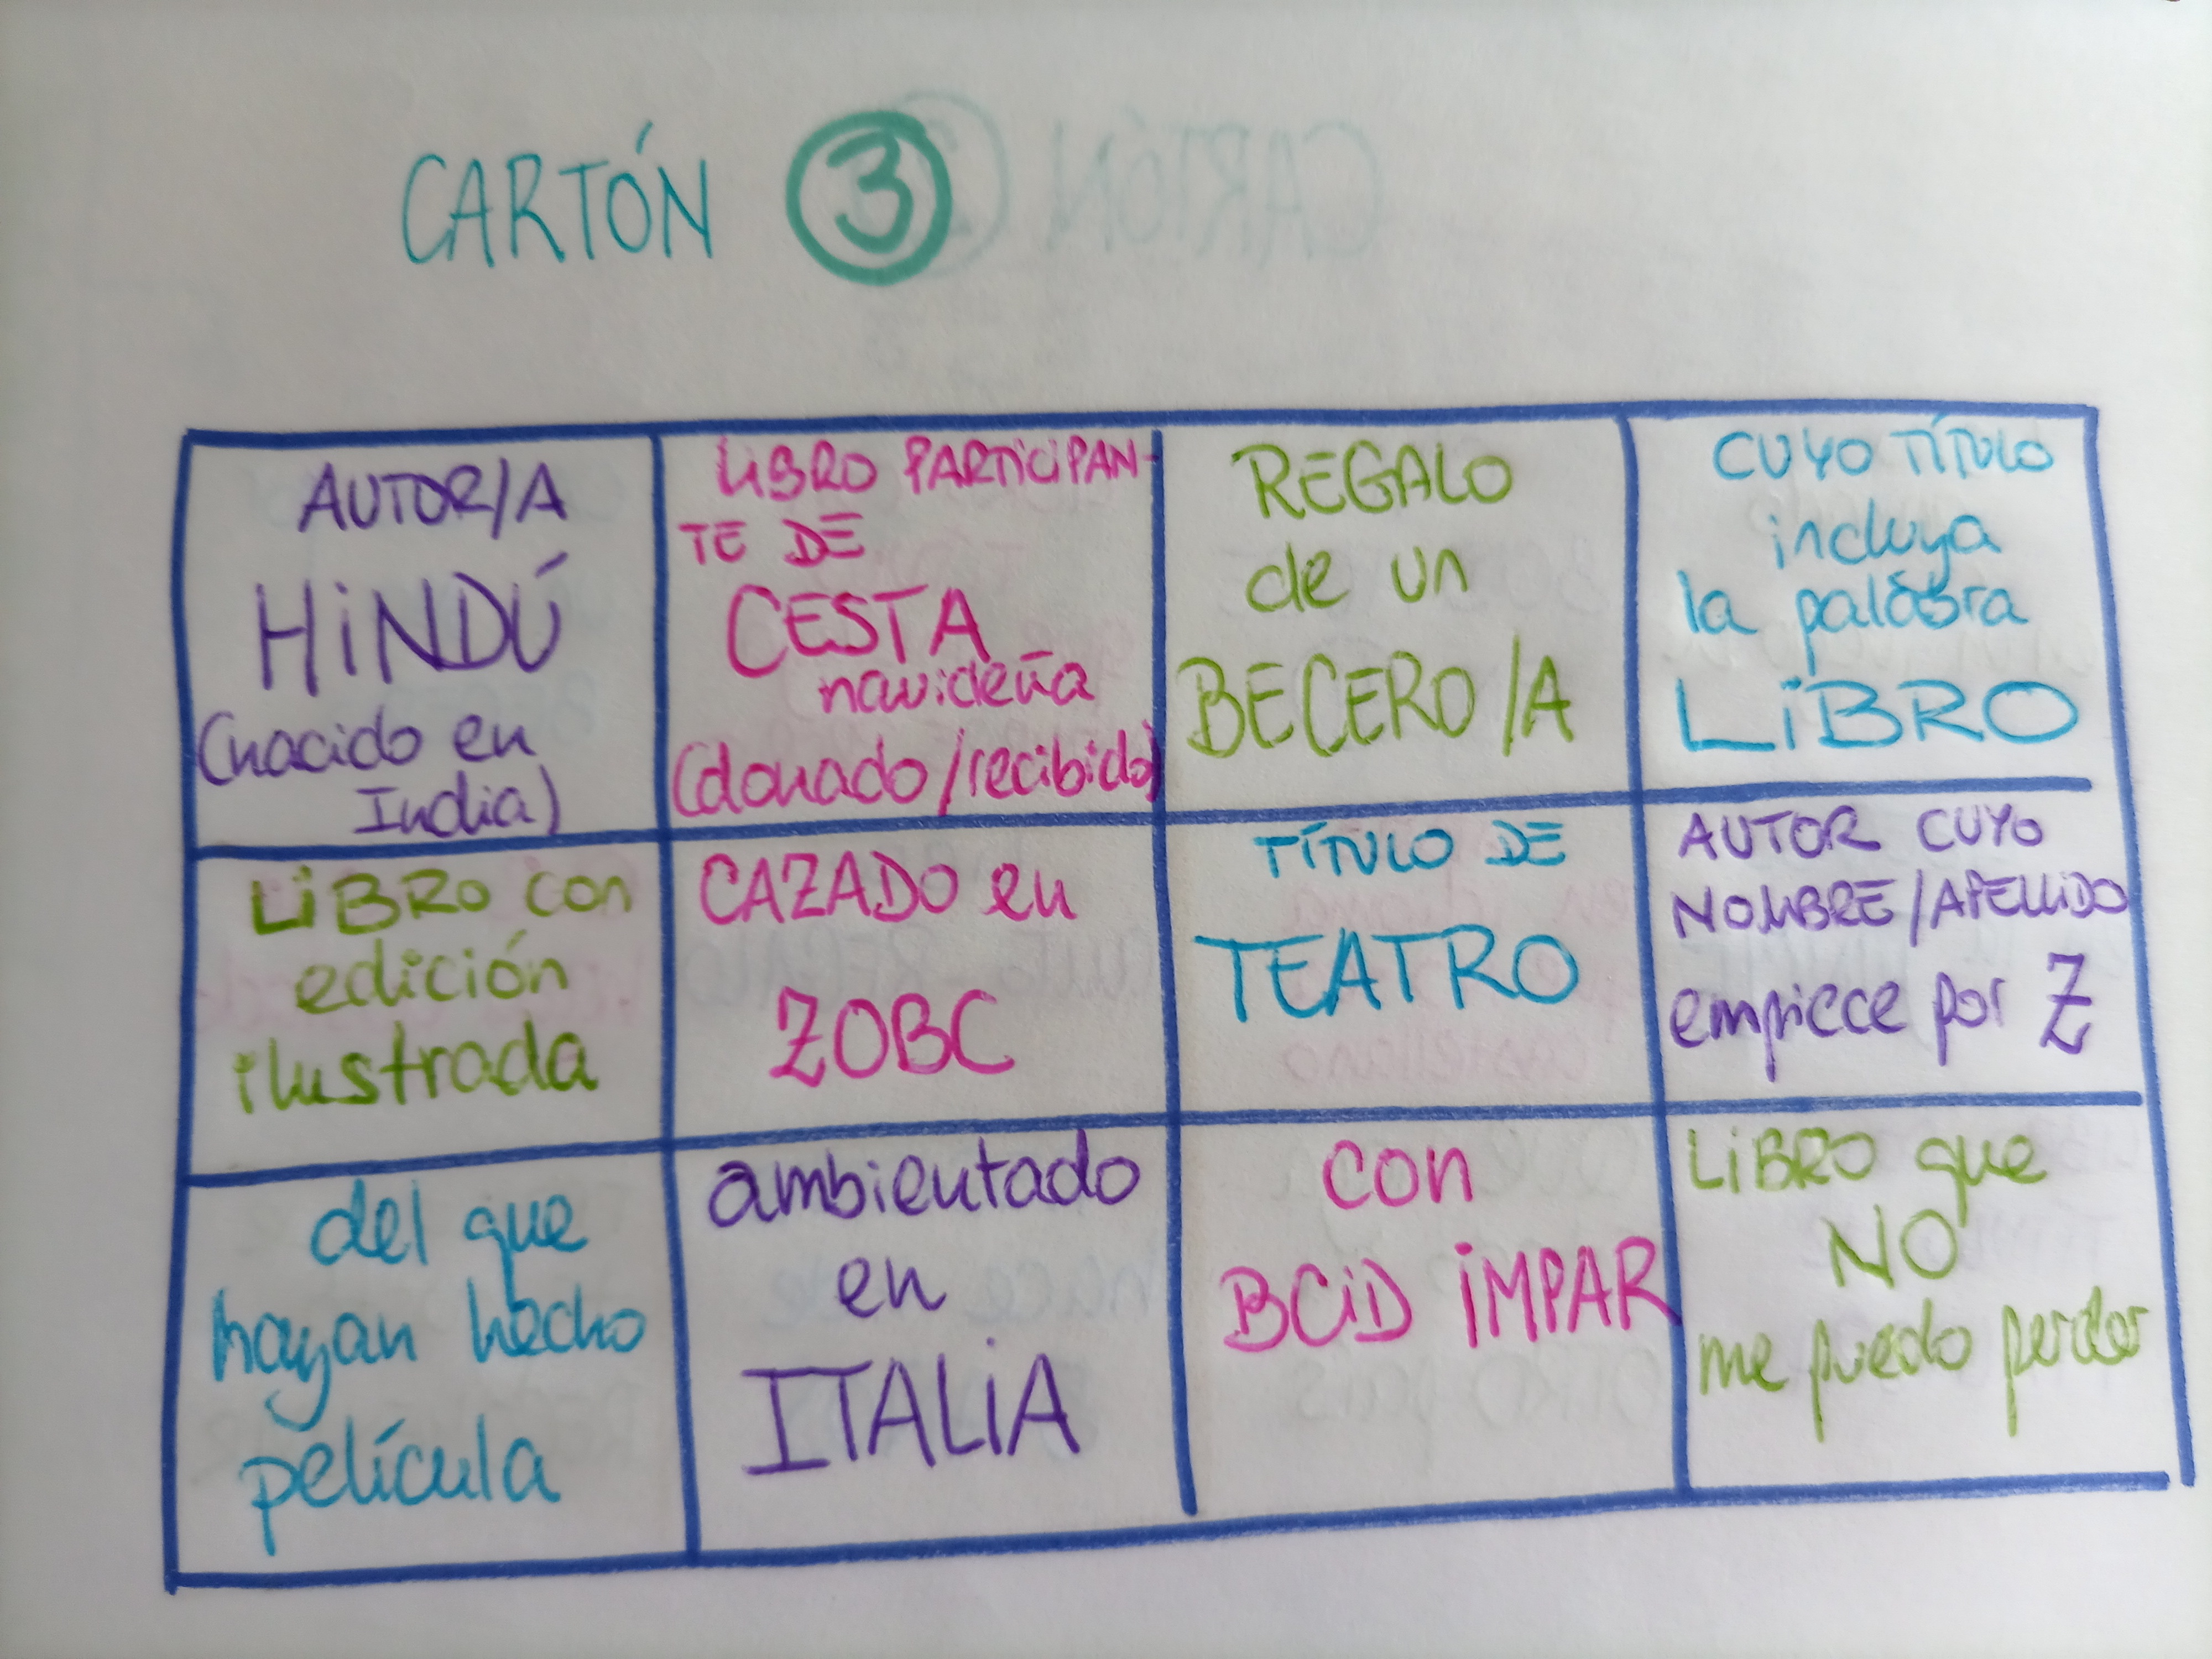 CARTÓN 3
AUTOR/A
HINDÚ
(nacido en
India)
LIBRO PARTICIPAN-
TE DE
CESTA
navideña
(donado/recibido)
REGALO
de un
BECERO/A
CUYO TÍTULO
incluya
la palabra
LIBRO
LIBRO con
edición
ilustrada
CAZADO en
ZOBC
TÍTULO DE
TEATRO
AUTOR CUYO
NOMBRE/APELLIDO
empiece por Z
del que
hayan hecho
película
ambientado
en
ITALIA
con
BCID IMPAR
LIBRO que
NO
me puedo perder